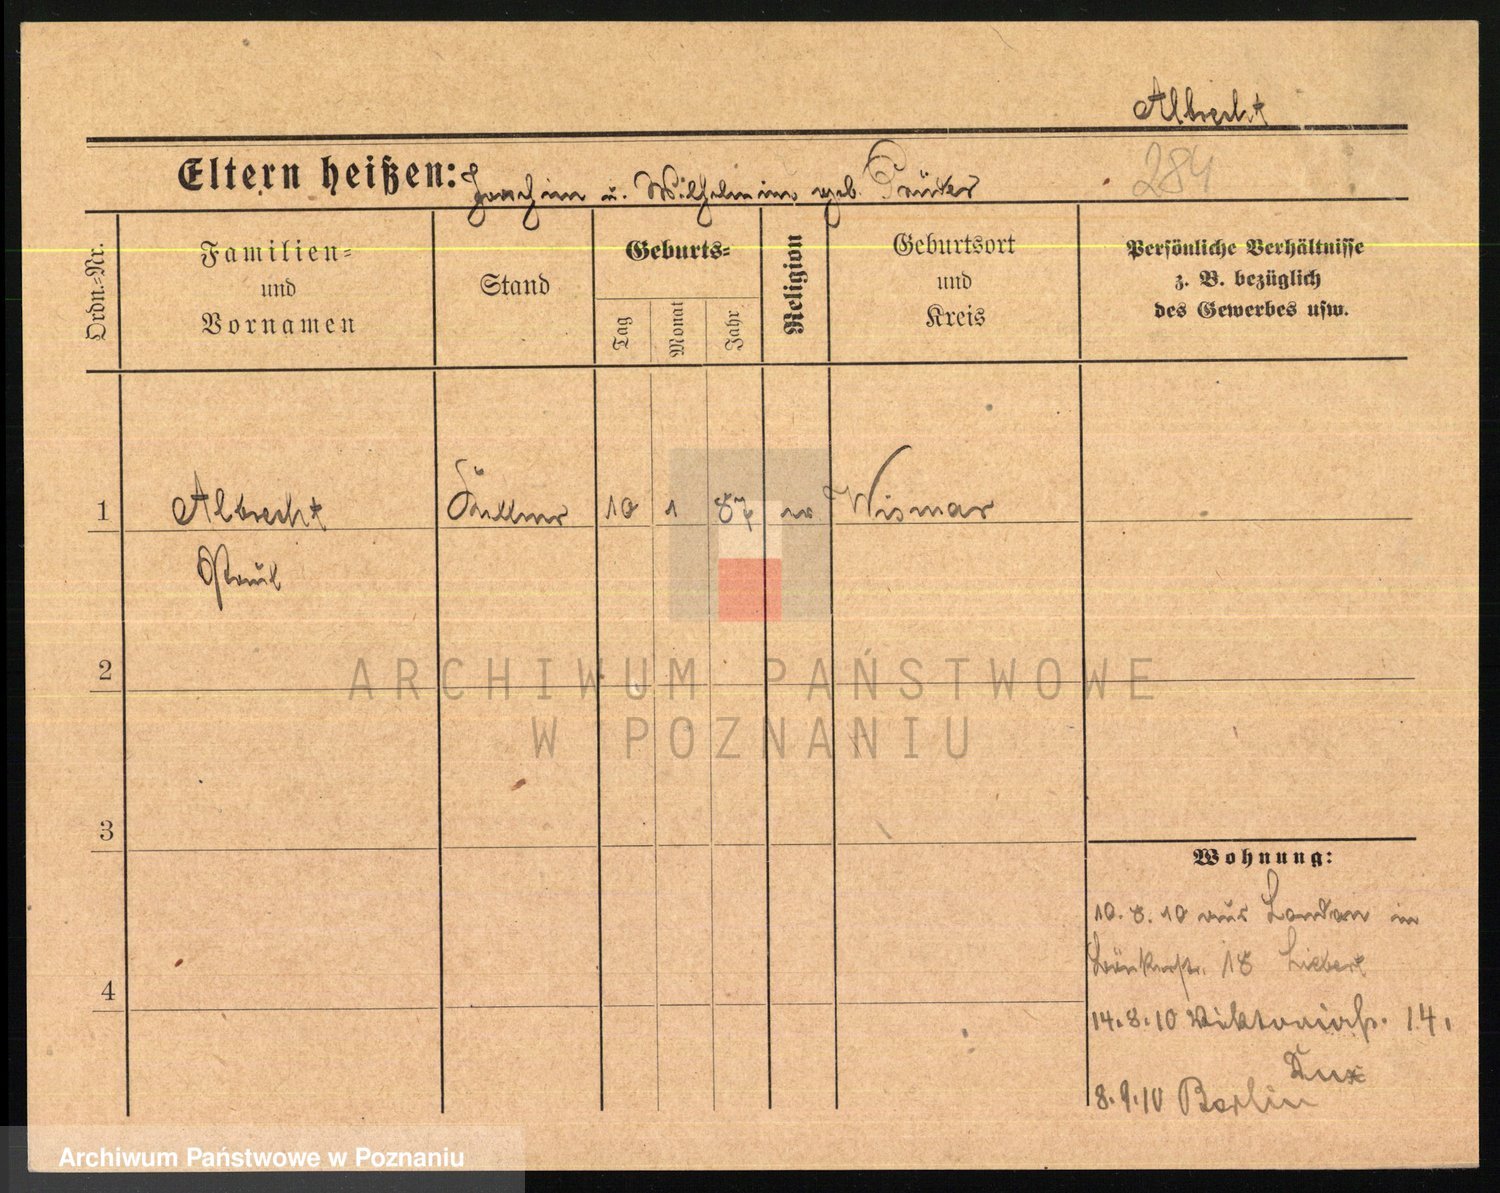 Albrecht
284
Eltern heißen: Joachim u. Wilhelmine geb. Trüter
Ordn.-Nr.
Familien-
und
Vornamen
Stand
Geburts-
Tag
Monat
Jahr
Religion
Geburtsort
und
Kreis
Persönliche Verhältnisse
z. B. bezüglich
des Gewerbes usw.
1 Albrecht Kellner 10 1 87 ev Wismar
Paul
2
3
4
Wohnung:
10.8.10 aus London in
18 Liebert
14.8.10 Viktoriastr. 14.
Dux
8.9.10 Berlin
ARCHIWUM PAŃSTWOWE
W POZNANIU
Archiwum Państwowe w Poznaniu